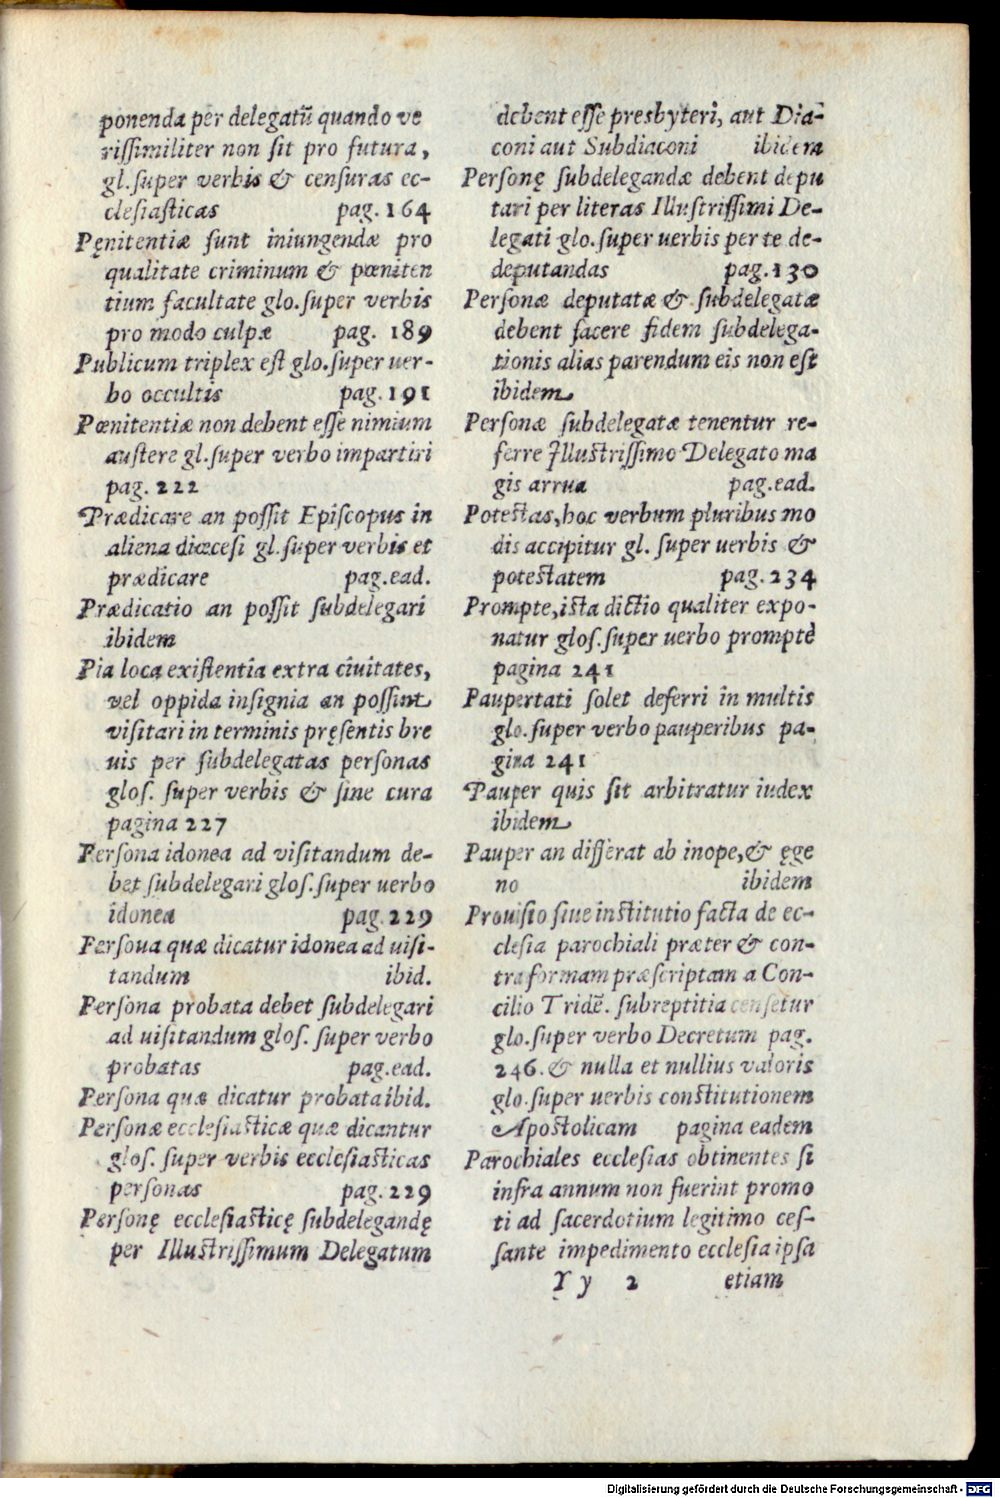 ponenda per delegatū quando ve
rissimiliter non sit pro futura,
gl. super verbis & censuras ec-
clesiasticas pag. 164
Pęnitentiæ sunt iniungendæ pro
qualitate criminum & pœniten
tium facultate glo. super verbis
pro modo culpæ pag. 189
Publicum triplex est glo. super uer-
bo occultis pag. 191
Pœnitentiæ non debent esse nimium
austere gl. super verbo impartiri
pag. 222
Prædicare an possit Episcopus in
aliena diœcesi gl. super verbis et
prædicare pag. ead.
Prædicatio an possit subdelegari
ibidem
Pia loca existentia extra ciuitates,
vel oppida insignia an possint
visitari in terminis pręsentis bre
uis per subdelegatas personas
glos. super verbis & sine cura
pagina 227
Persona idonea ad visitandum de-
bet subdelegari glos. super uerbo
idonea pag. 229
Persoua quæ dicatur idonea ad uisi-
tandum ibid.
Persona probata debet subdelegari
ad uisitandum glos. super verbo
probatas pag. ead.
Persona quæ dicatur probata ibid.
Personæ ecclesiasticæ quæ dicantur
glos. super verbis ecclesiasticas
personas pag. 229
Personę ecclesiasticę subdelegandę
per Illustrissimum Delegatum
debent esse presbyteri, aut Dia-
coni aut Subdiaconi ibidem
Personę subdelegandæ debent depu
tari per literas Illustrissimi De-
legati glo. super uerbis per te de-
deputandas pag. 130
Personæ deputatæ & subdelegatæ
debent facere fidem subdelega-
tionis alias parendum eis non est
ibidem
Personæ subdelegatæ tenentur re-
ferre Illustrissimo Delegato ma
gis arrua pag. ead.
Potestas, hoc verbum pluribus mo
dis accipitur gl. super uerbis &
potestatem pag. 234
Prompte, ista dictio qualiter expo-
natur glos. super uerbo promptè
pagina 241
Paupertati solet deferri in multis
glo. super verbo pauperibus pa-
gina 241
Pauper quis sit arbitratur iudex
ibidem
Pauper an differat ab inope, & ęge
no ibidem
Prouisio siue institutio facta de ec-
clesia parochiali præter & con-
tra formam præscriptam a Con-
cilio Tridē. subreptitia censetur
glo. super verbo Decretum pag.
246. & nulla et nullius valoris
glo. super uerbis constitutionem
Apostolicam pagina eadem
Parochiales ecclesias obtinentes si
infra annum non fuerint promo
ti ad sacerdotium legitimo ces-
sante impedimento ecclesia ipsa
Y y 2 etiam
Digitalisierung gefördert durch die Deutsche Forschungsgemeinschaft - DFG